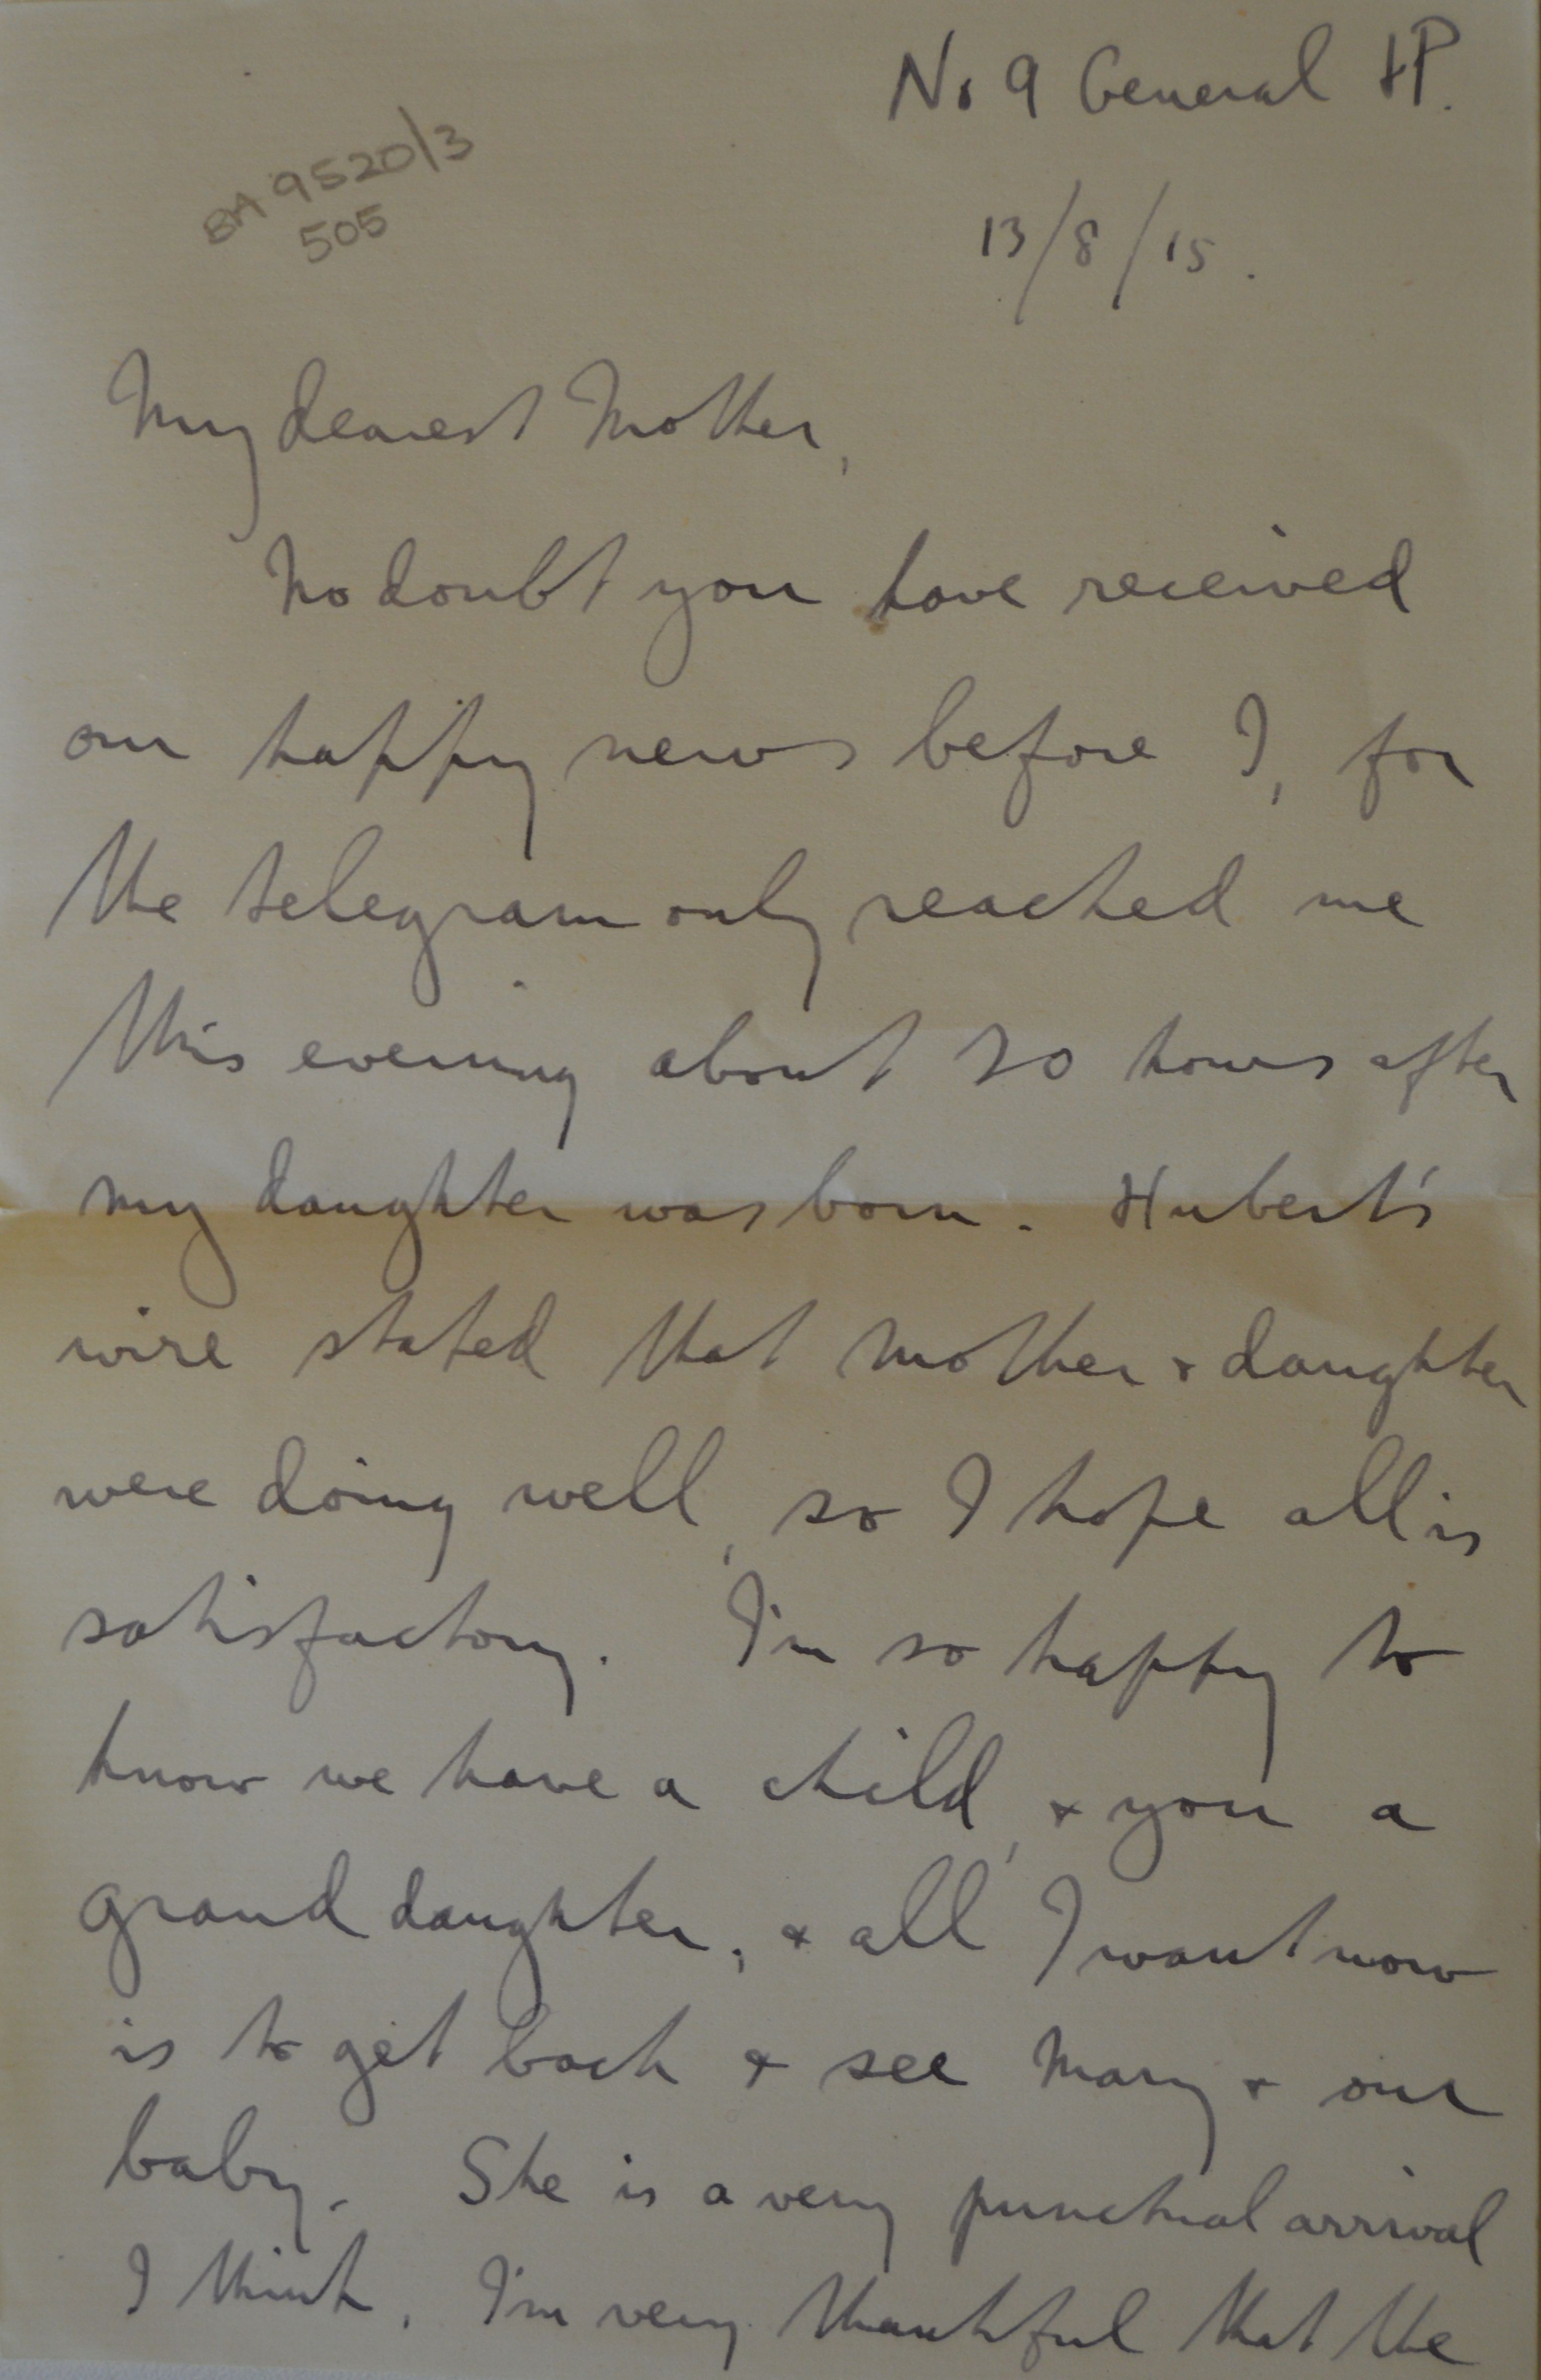 No 9 General HP.
BA 9520/3
505
13/8/15.
My dearest Mother,
No doubt you have received
our happy news before I, for
the telegram only reached me
this evening about 20 hours after
my daughter was born. Hubert's
wire stated that mother & daughter
were doing well, so I hope all is
satisfactory. I'm so happy to
know we have a child, & you a
grand daughter, & all I want now
is to get back & see Mary & our
baby. She is a very punctual arrival
I think. I'm very thankful that the